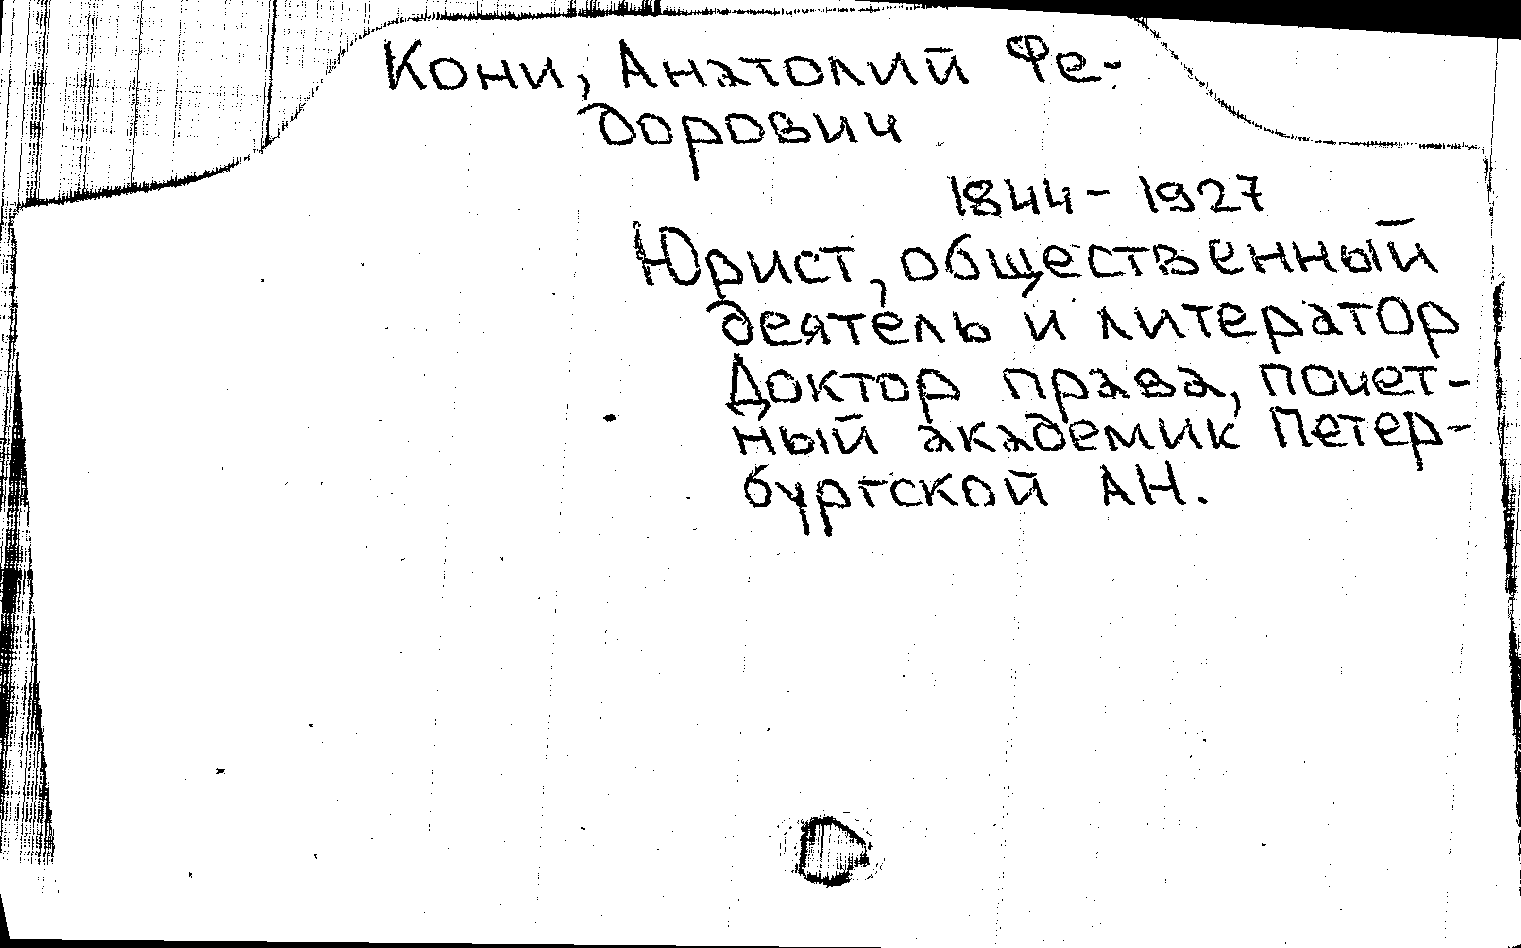 Кони, Анатолий Фе-
дорович
1844 - 1927
Юрист, общественный
деятель и литератор
Доктор права, почет-
ный академик Петер-
бургской АН.